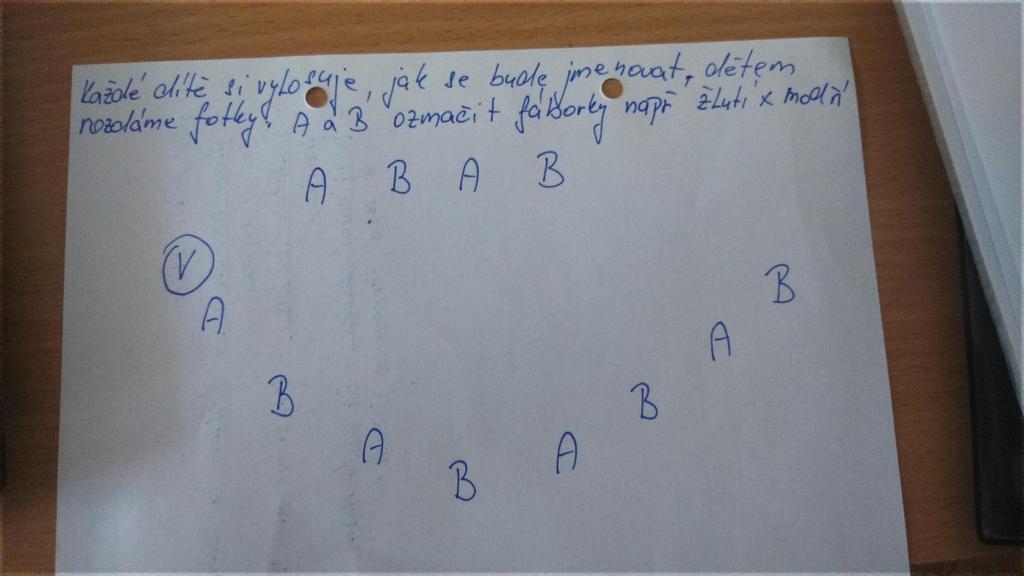 Každé dítě si vylosuje, jak se bude jmenovat, dětem
rozdáme fotky. A a B označit fáborky např žlutí x modří
A B A B
V
B
A
A
B
B
A
A
B